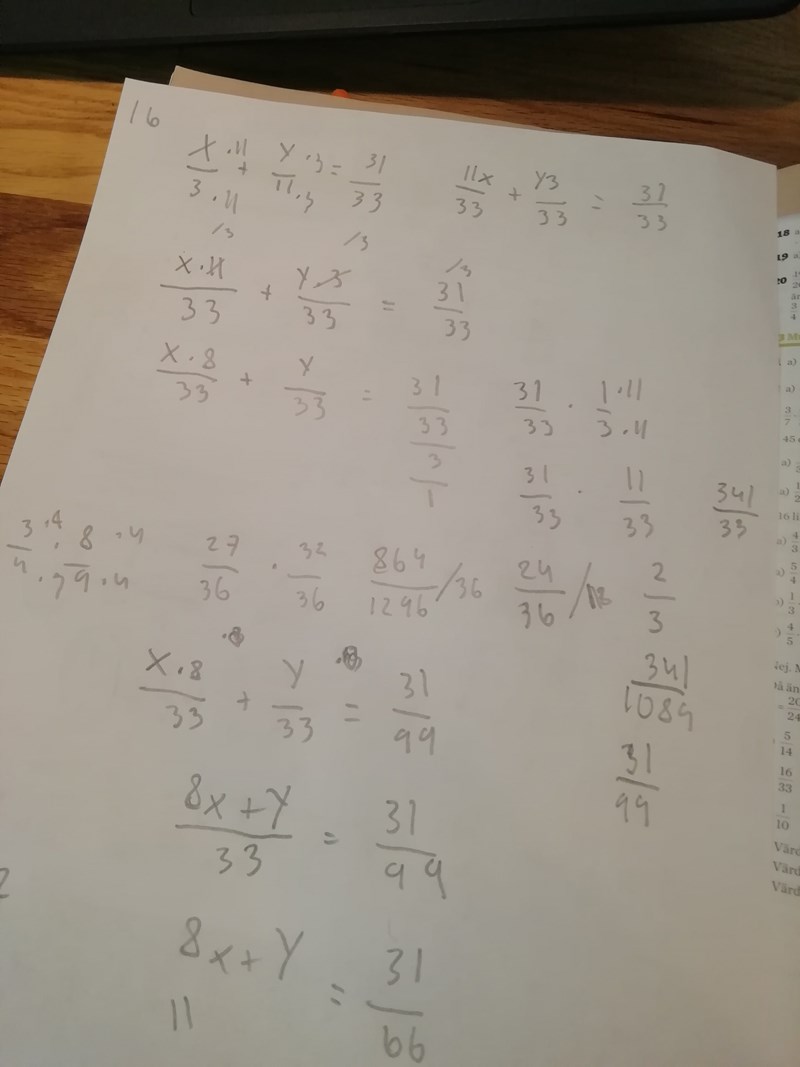 16
X·11/3·11 + Y·3/11·3 = 31/33    11x/33 + Y3/33 = 31/33
/3 /3 /3
X·11/33 + Y·3/33 = 31/33
X·8/33 + Y/33 = 31/33/3/1    31/33 · 1·11/3·11
31/33 · 11/33    341/33
3·4/4· · 8·4/9·4    27/36 · 32/36    864/1296 /36    24/36 /    2/3
X·8/33 + Y/33 = 31/99    341/1089
31/99
8x+Y/33 = 31/99
8x+Y/11 = 31/66
18
19
20
3/4
a)
a)
3/7
45
a)
a) 1/2
16 li
a) 4/3
a) 5/4
b) 1/3
) 4/5
Nej. M
Då än
= 20/24
5/14
16/33
1/10
Värd
Värd
Värd